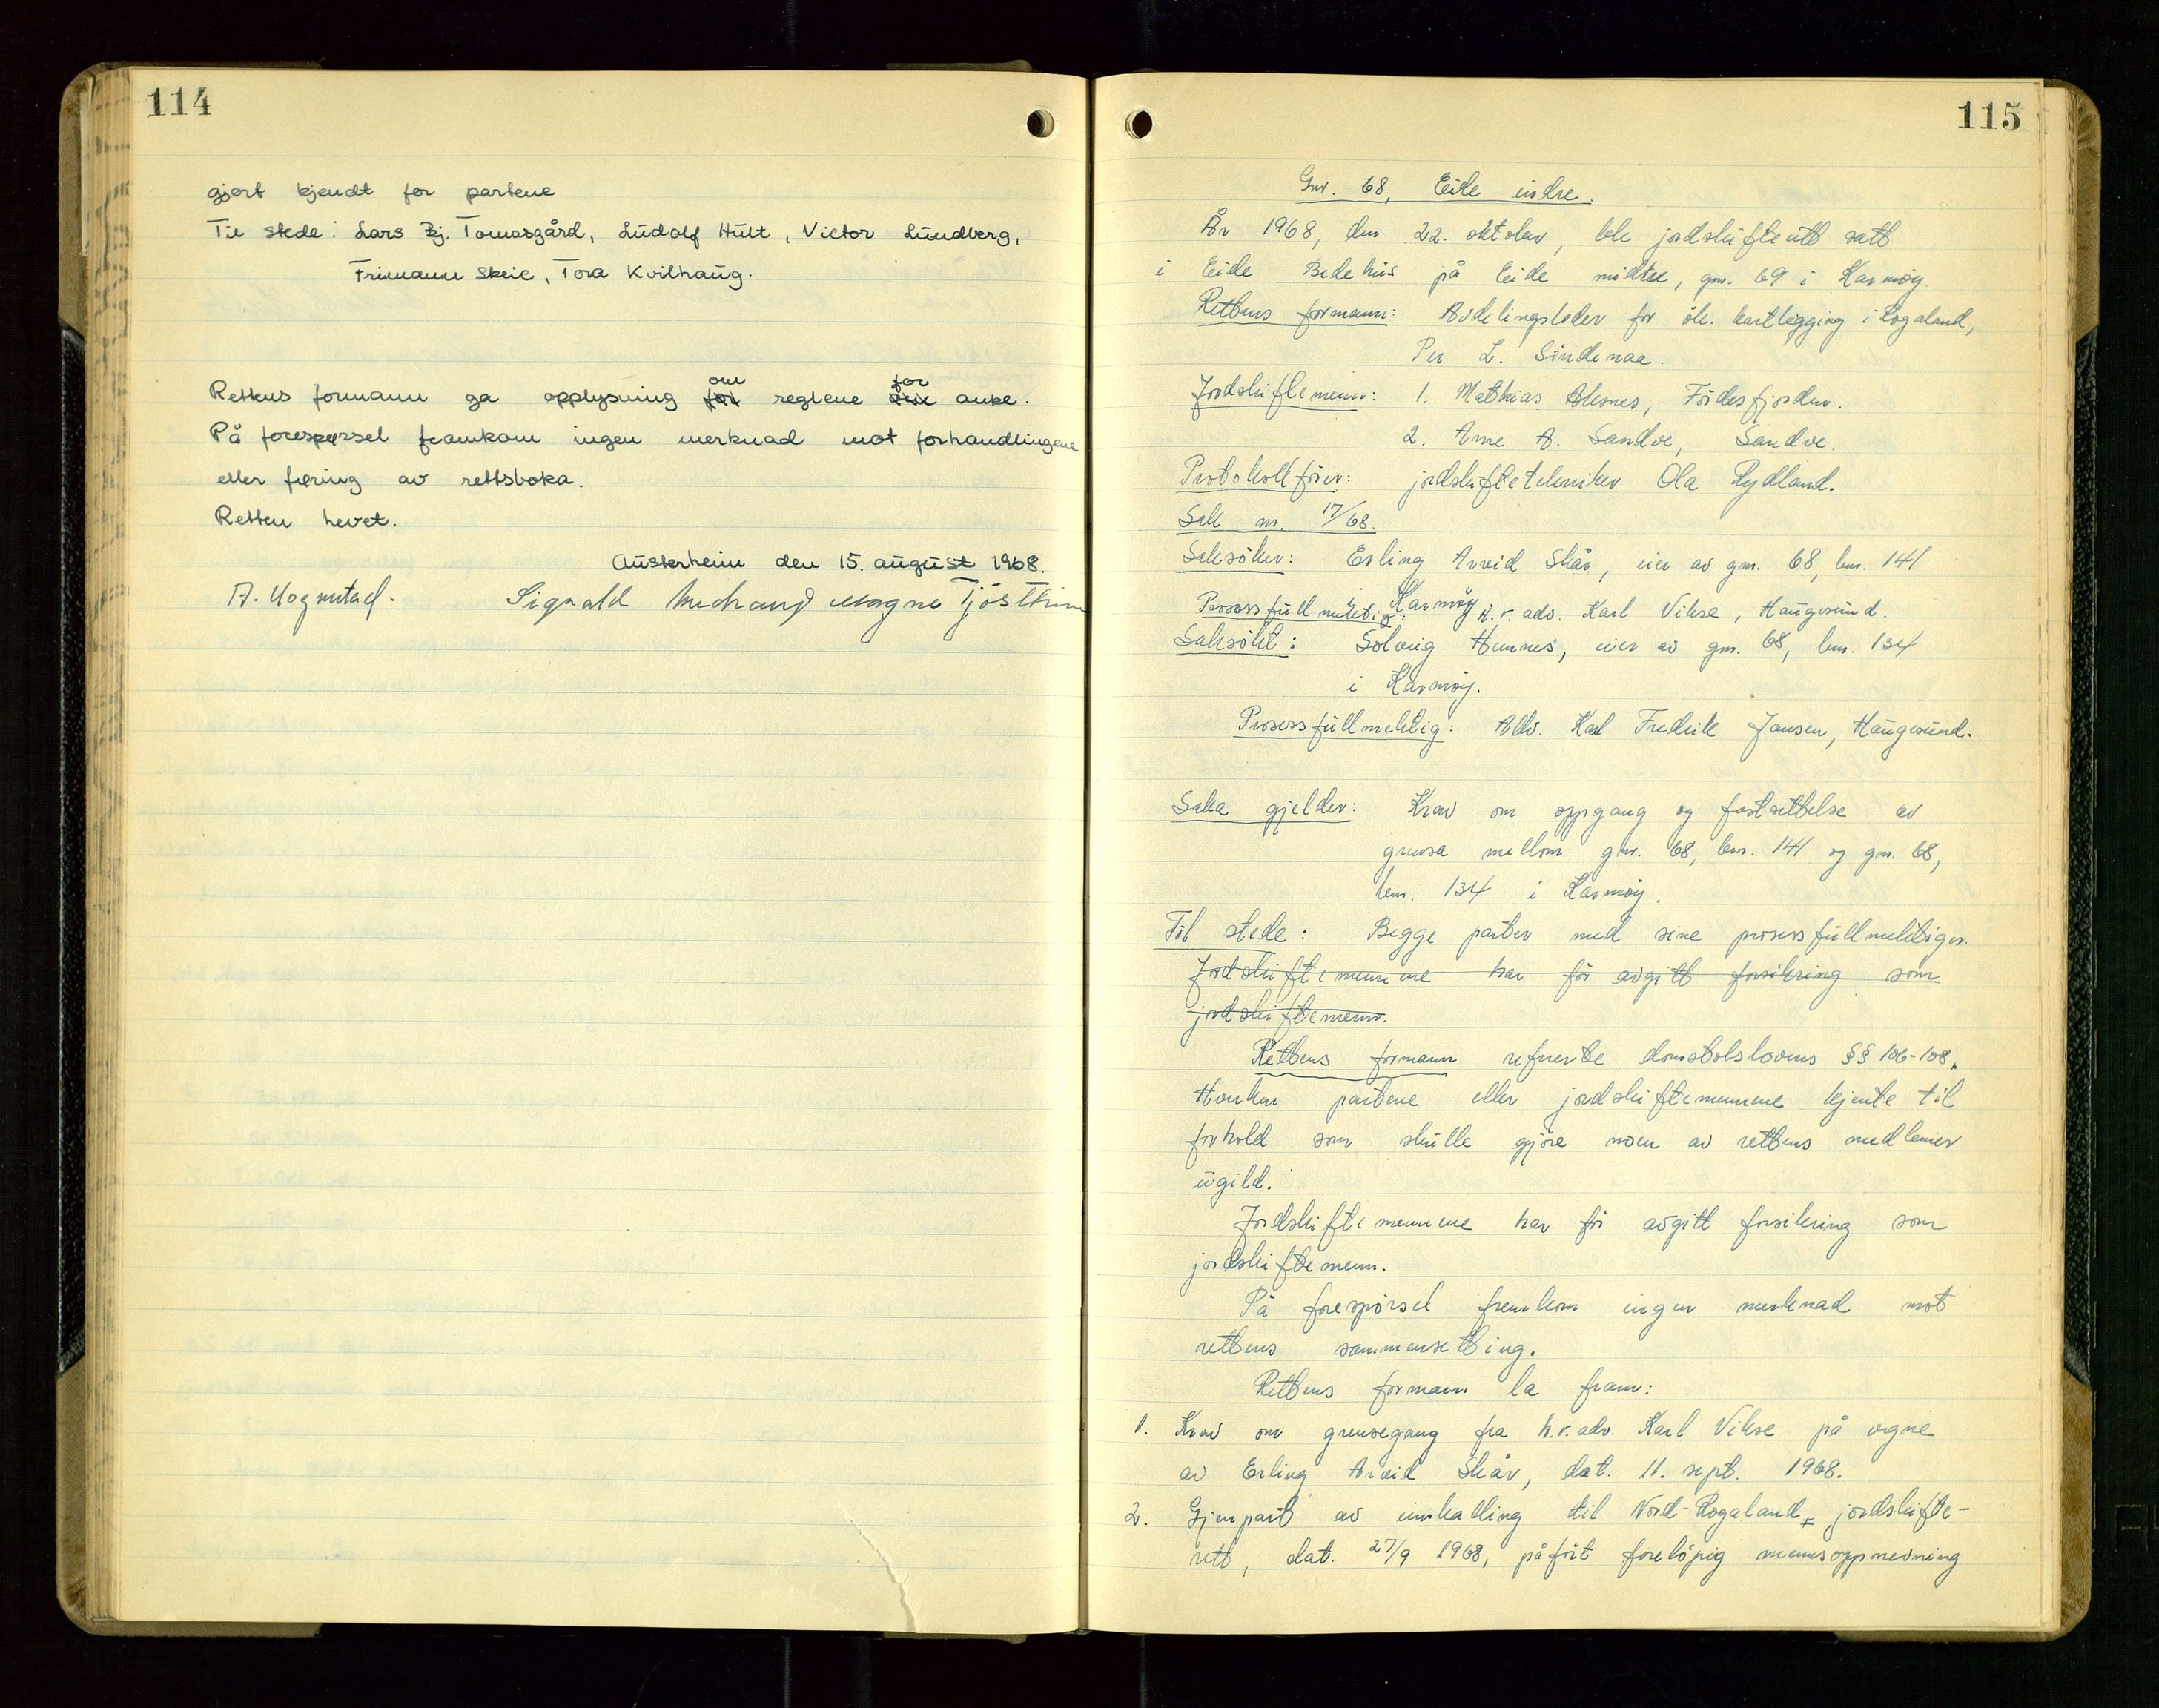 114
gjort kjendt for partene
Til stede: Lars Bj. Tomasgård, Ludolf Hult, Victor Lundberg,
Frimann Skeie, Tora Kvilhaug.
Rettens formann ga opplysning om reglene for anke.
På forespørsel framkom ingen merknad mot forhandlingene
eller føring av rettsboka.
Retten hevet.
Austerheim den 15. august 1968.
Sigvald Magne Tjøstheim
115
Gnr. 68, Eide indre.
År 1968, den 22. oktober, ble jordskifterett satt
i Eide Bedehus på Eide midtre, gnr. 69 i Karmøy.
Rettens formann: Avdelingsleder for øk. kartlegging i Rogaland,
Per L. Sindenaa.
Jordskiftemenn: 1. Mathias Alsnes, Førdesfjorden.
2. Arne A. Sandve, Sandve.
Protokollfører: jordskiftetekniker Ola Rydland.
Sak nr. 17/68.
Saksøker: Erling Arvid Skår, eier av gnr. 68, bnr. 141
i Karmøy
Prosessfullmektig: H.r. adv. Karl Vikse, Haugesund.
Saksøkt: Solveig Hemnes, eier av gnr. 68, bnr. 134
i Karmøy.
Prosessfullmektig: Adv. Karl Fredrik Jansen, Haugesund.
Saka gjelder: Krav om oppgang og fastsettelse av
grensa mellom gnr. 68, bnr. 141 og gnr. 68,
bnr. 134 i Karmøy.
Til stede: Begge parter med sine prosessfullmektiger.
Jordskiftemennene har før avgitt forsikring som
jordskiftemenn.
Rettens formann refererte domstolslovens §§ 106-108.
Hverken partene eller jordskiftemennene kjente til
forhold som skulle gjøre noen av rettens medlemer
ugild.
Jordskiftemennene har før avgitt forsikring som
jordskiftemenn.
På forespørsel fremkom ingen merknad mot
rettens sammensetting.
Rettens formann la fram:
1. Krav om grensegang fra h.r.adv. Karl Vikse på vegne
av Erling Arvid Skår, dat. 11. sept. 1968.
2. Gjenpart av innkalling til Nord-Rogaland jordskifte-
rett, dat. 27/9 1968, påført foreløpig mannsoppnevning